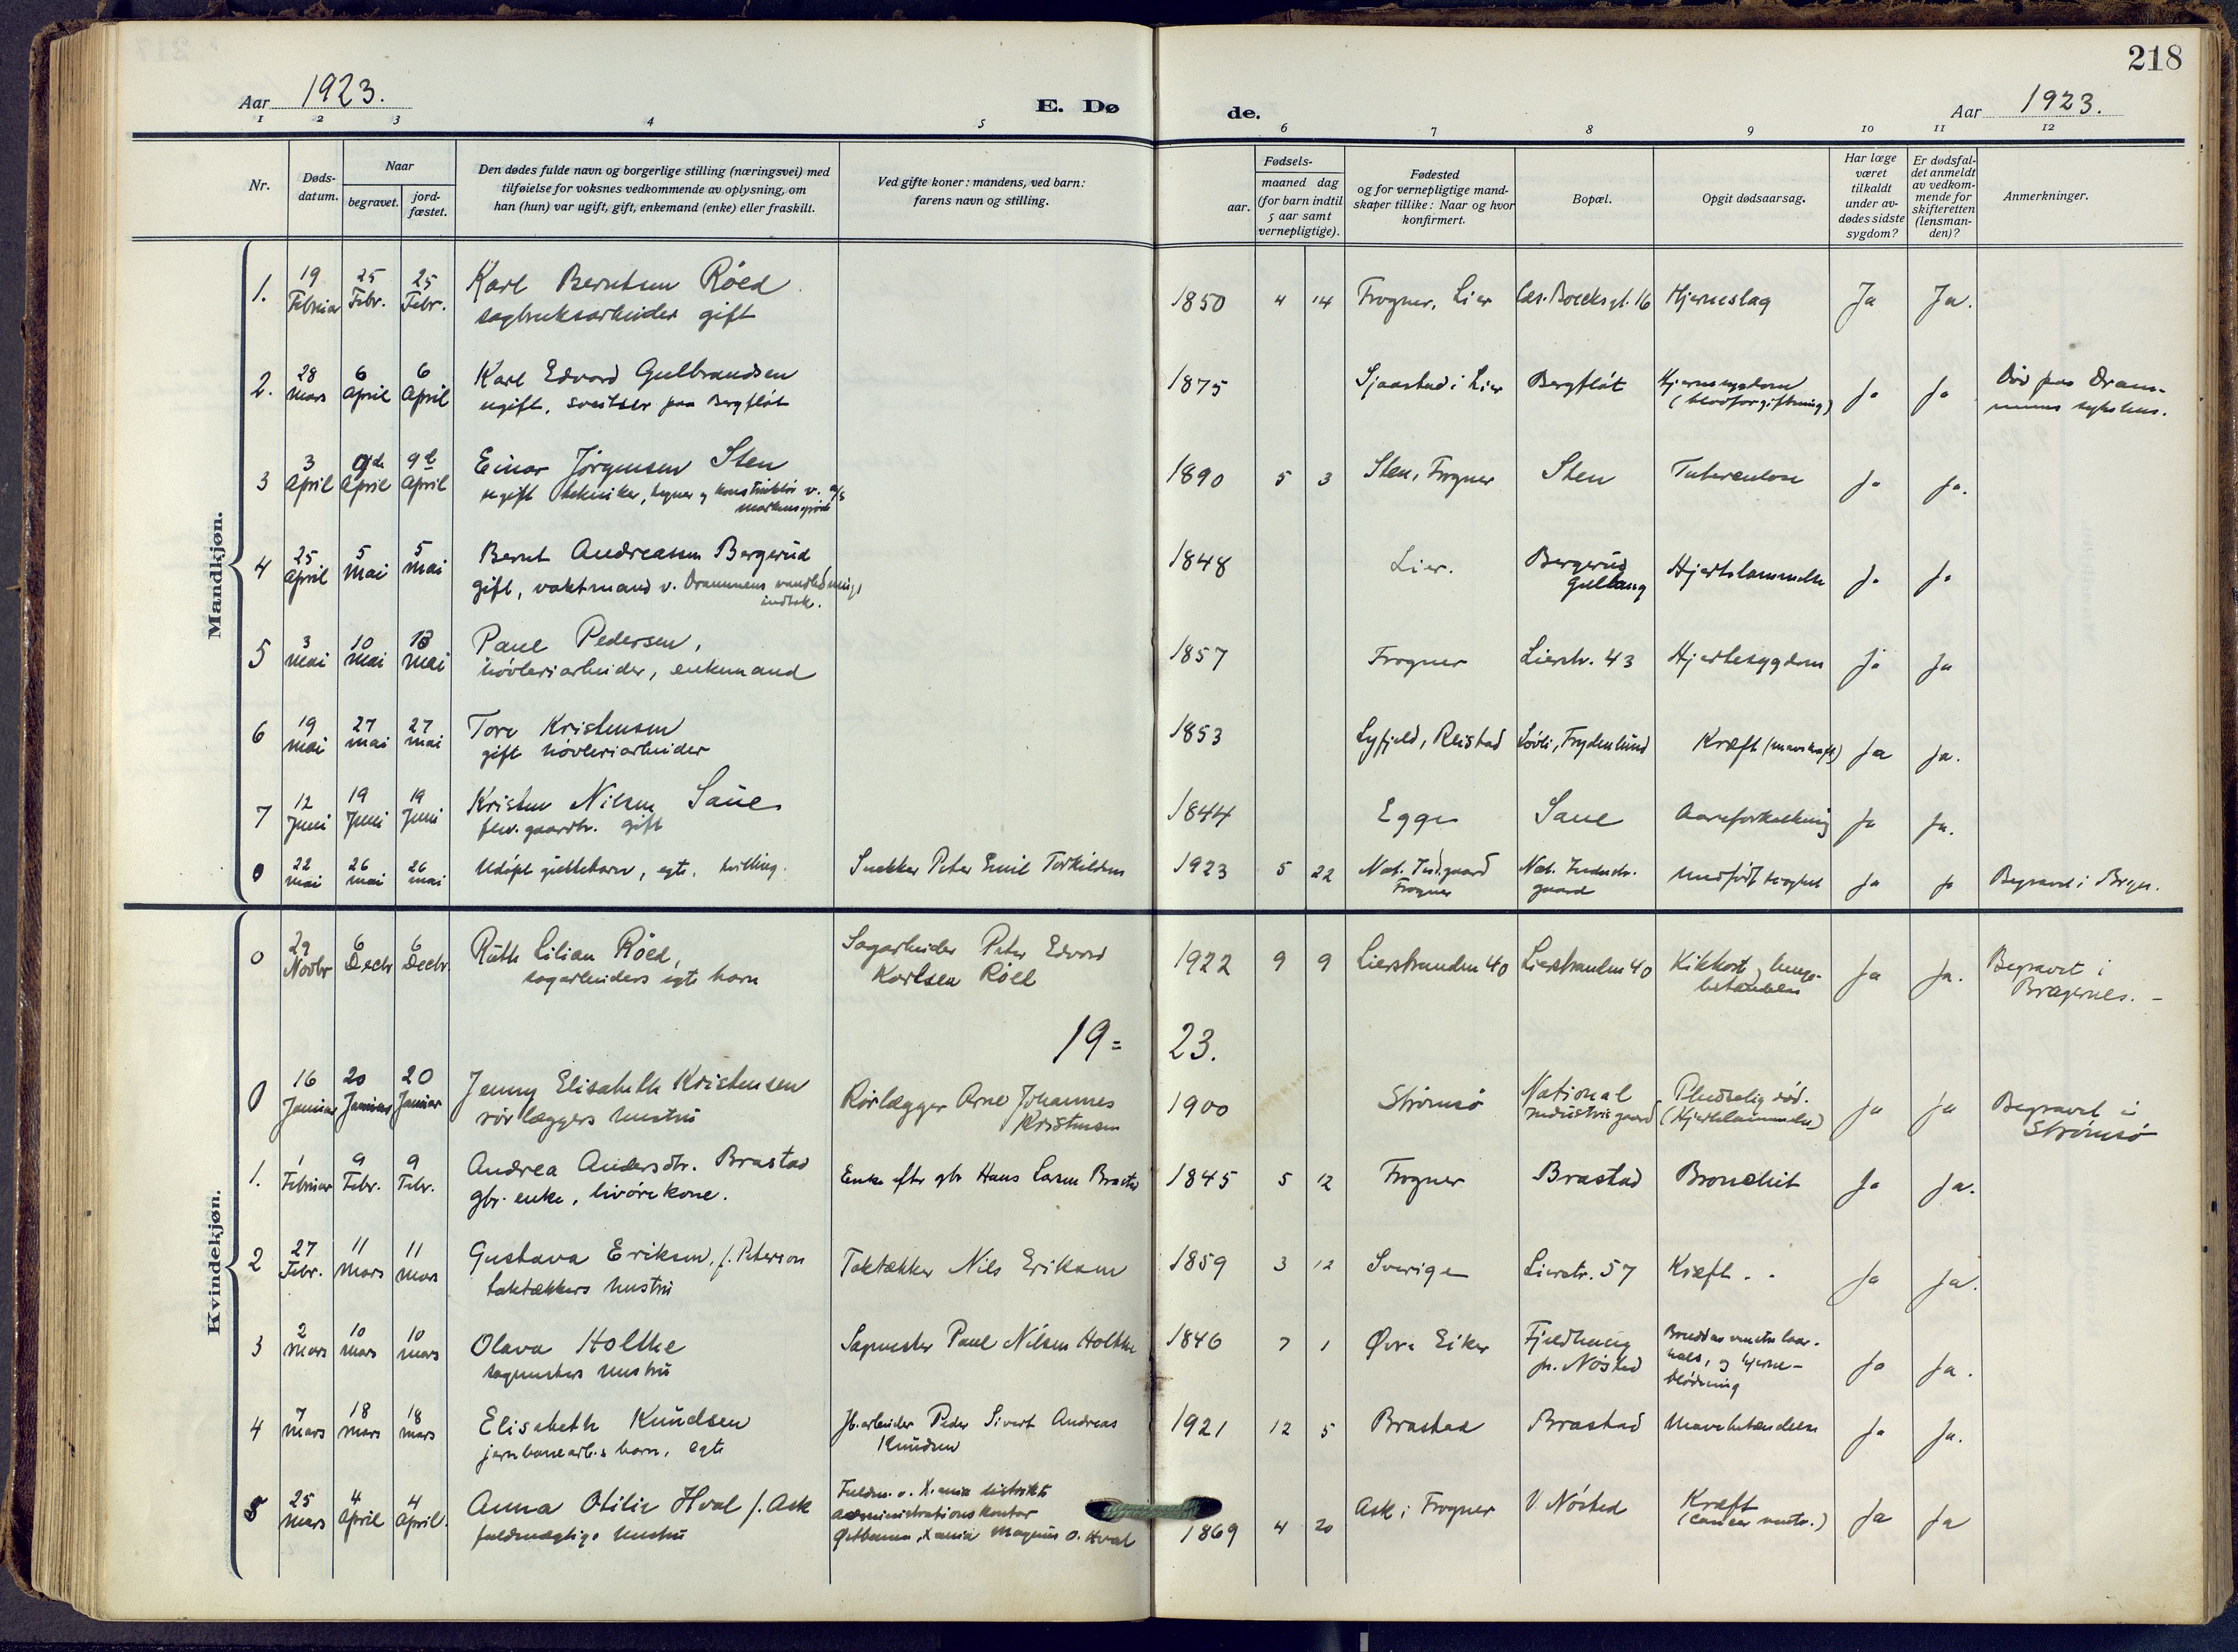 218
Aar 1923.
E. Dø
de.
Aar 1923.
1 2 3 4 5 6 7 8 9 10 11 12
Nr.
Døds-
datum.
Naar
begravet.
jord-
fæstet.
Den dødes fulde navn og borgerlige stilling (næringsvei) med
tilføielse for voksnes vedkommende av oplysning, om
han (hun) var ugift, gift, enkemand (enke) eller fraskilt.
Ved gifte koner: mandens, ved barn:
farens navn og stilling.
Fødsels-
aar.
maaned dag
(for barn indtil
5 aar samt
vernepligtige).
Fødested
og for vernepligtige mand-
skaper tillike: Naar og hvor
konfirmert.
Bopæl.
Opgit dødsaarsag.
Har læge
været
tilkaldt
under av-
dødes sidste
sygdom?
Er dødsfal-
det anmeldt
av vedkom-
mende for
skifteretten
(lensman-
den)?
Anmerkninger.
Mandkjøn.
1. 19 Februar 25 Febr. 25 Febr. Karl Berntsen Röed 1850 4 14 Frogner, Lier Cas. Boecksgt. 16 Hjerneslag Ja Ja.
sagbruksarbeider gift
2. 28 Mars 6 April 6 April Karl Edvard Gulbrandsen 1875 Sjaastad i Lier Bergflöt Hjernesygdom Ja Ja Död paa Dram-
ugift, sveitser paa Bergflöt (blodforgiftning) mens sykehus.
3 3 April 9de April 9de April Einar Jörgensen Sten 1890 5 3 Sten, Frogner Sten Tuberculose Ja Ja.
ugift tekniker, tegner og konstruktör v. a/s
4 25 April 5 Mai 5 Mai Bernt Andreassen Bergerud 1848 Lier. Bergerud Hjertelammelse Ja Ja
gift, vaktmand v. Drammens vandlednings Gullaug
indtak.
5 3 Mai 10 Mai 10 Mai Paul Pedersen, 1857 Frogner Lierstr. 43 Hjertesygdom Ja Ja
hövleriarbeider, enkemand
6 19 Mai 27 Mai 27 Mai Tore Kristensen 1853 Lyfjeld, Reistad Lövli, Frydenlund Kræft (mavekræft) Ja Ja.
gift hövleriarbeider
7 12 Juni 19 Juni 19 Juni Kristen Nilsen Saue 1844 Egge Saue Aareforkalkning Ja Ja.
fhv. gaardbr. gift
0 22 Mai 26 Mai 26 Mai Udöpt guttebarn, egte, tvilling. Snekker Peter Emil Torkildsen 1923 5 22 Nat. Ind.gaard Nat. Industr. Medfödt svaghet Ja Ja Begravet i Brgn.
Frogner gaard
Kvindekjøn.
0 29 Novbr 6 Decbr 6 Decbr. Ruth Lilian Röed, Sagarbeider Peter Edvard 1922 9 9 Lierstranden 40 Lierstranden 40 Kikhoste, lunge- Ja Ja. Begravet i
sagarbeiders egte barn Karlsen Röed betændelse Bragernes. -
19= 23.
0 16 Januar 20 Januar 20 Januar Jenny Elisabeth Kristensen Rörlægger Arne Johannes 1900 Strömsö National Pludselig död. Ja Ja Begravet i
rörlæggers hustru Kristensen Industrigaard (Hjertelammelse) Strömsö
1. 1 Februar 9 Febr. 9 Febr. Andrea Andersdtr. Brastad Enke efter gbr Hans Larsen Brastad 1845 5 12 Frogner Brastad Bronchit Ja Ja.
gbr. enke, livörekone.
2 27 Febr. 11 Mars 11 Mars Gustava Eriksen, f. Peterson Taktækker Nils Eriksen 1859 3 12 Sverige Lierstr. 57 Kræft. Ja Ja.
taktækkers hustru
3 2 Mars 10 Mars 10 Mars Olava Holthe Sagmester Paul Nilsen Holthe 1846 7 1 Övre Eiker Fjeldhaug Brudd av venstre laar- Ja Ja.
sagmesters hustru pr. Nösted hals, og hjerne-
blödning
4 7 Mars 18 Mars 18 Mars Elisabeth Knudsen Jb.arbeider Peder Sivert Andreas 1921 12 5 Brastad Brastad Mavebetændelse Ja Ja.
jernbanearb.s barn, egte Knudsen
5 25 Mars 4 April 4 April. Anna Otilie Hval f. Ask Fuldm. v. X.ania distrikts 1869 4 20 Ask i Frogner V. Nösted Kræft Ja Ja
fuldmægtigs hustru administrationskontor (cancer ventr.)
Östbanen, X.ania Magnus O. Hval